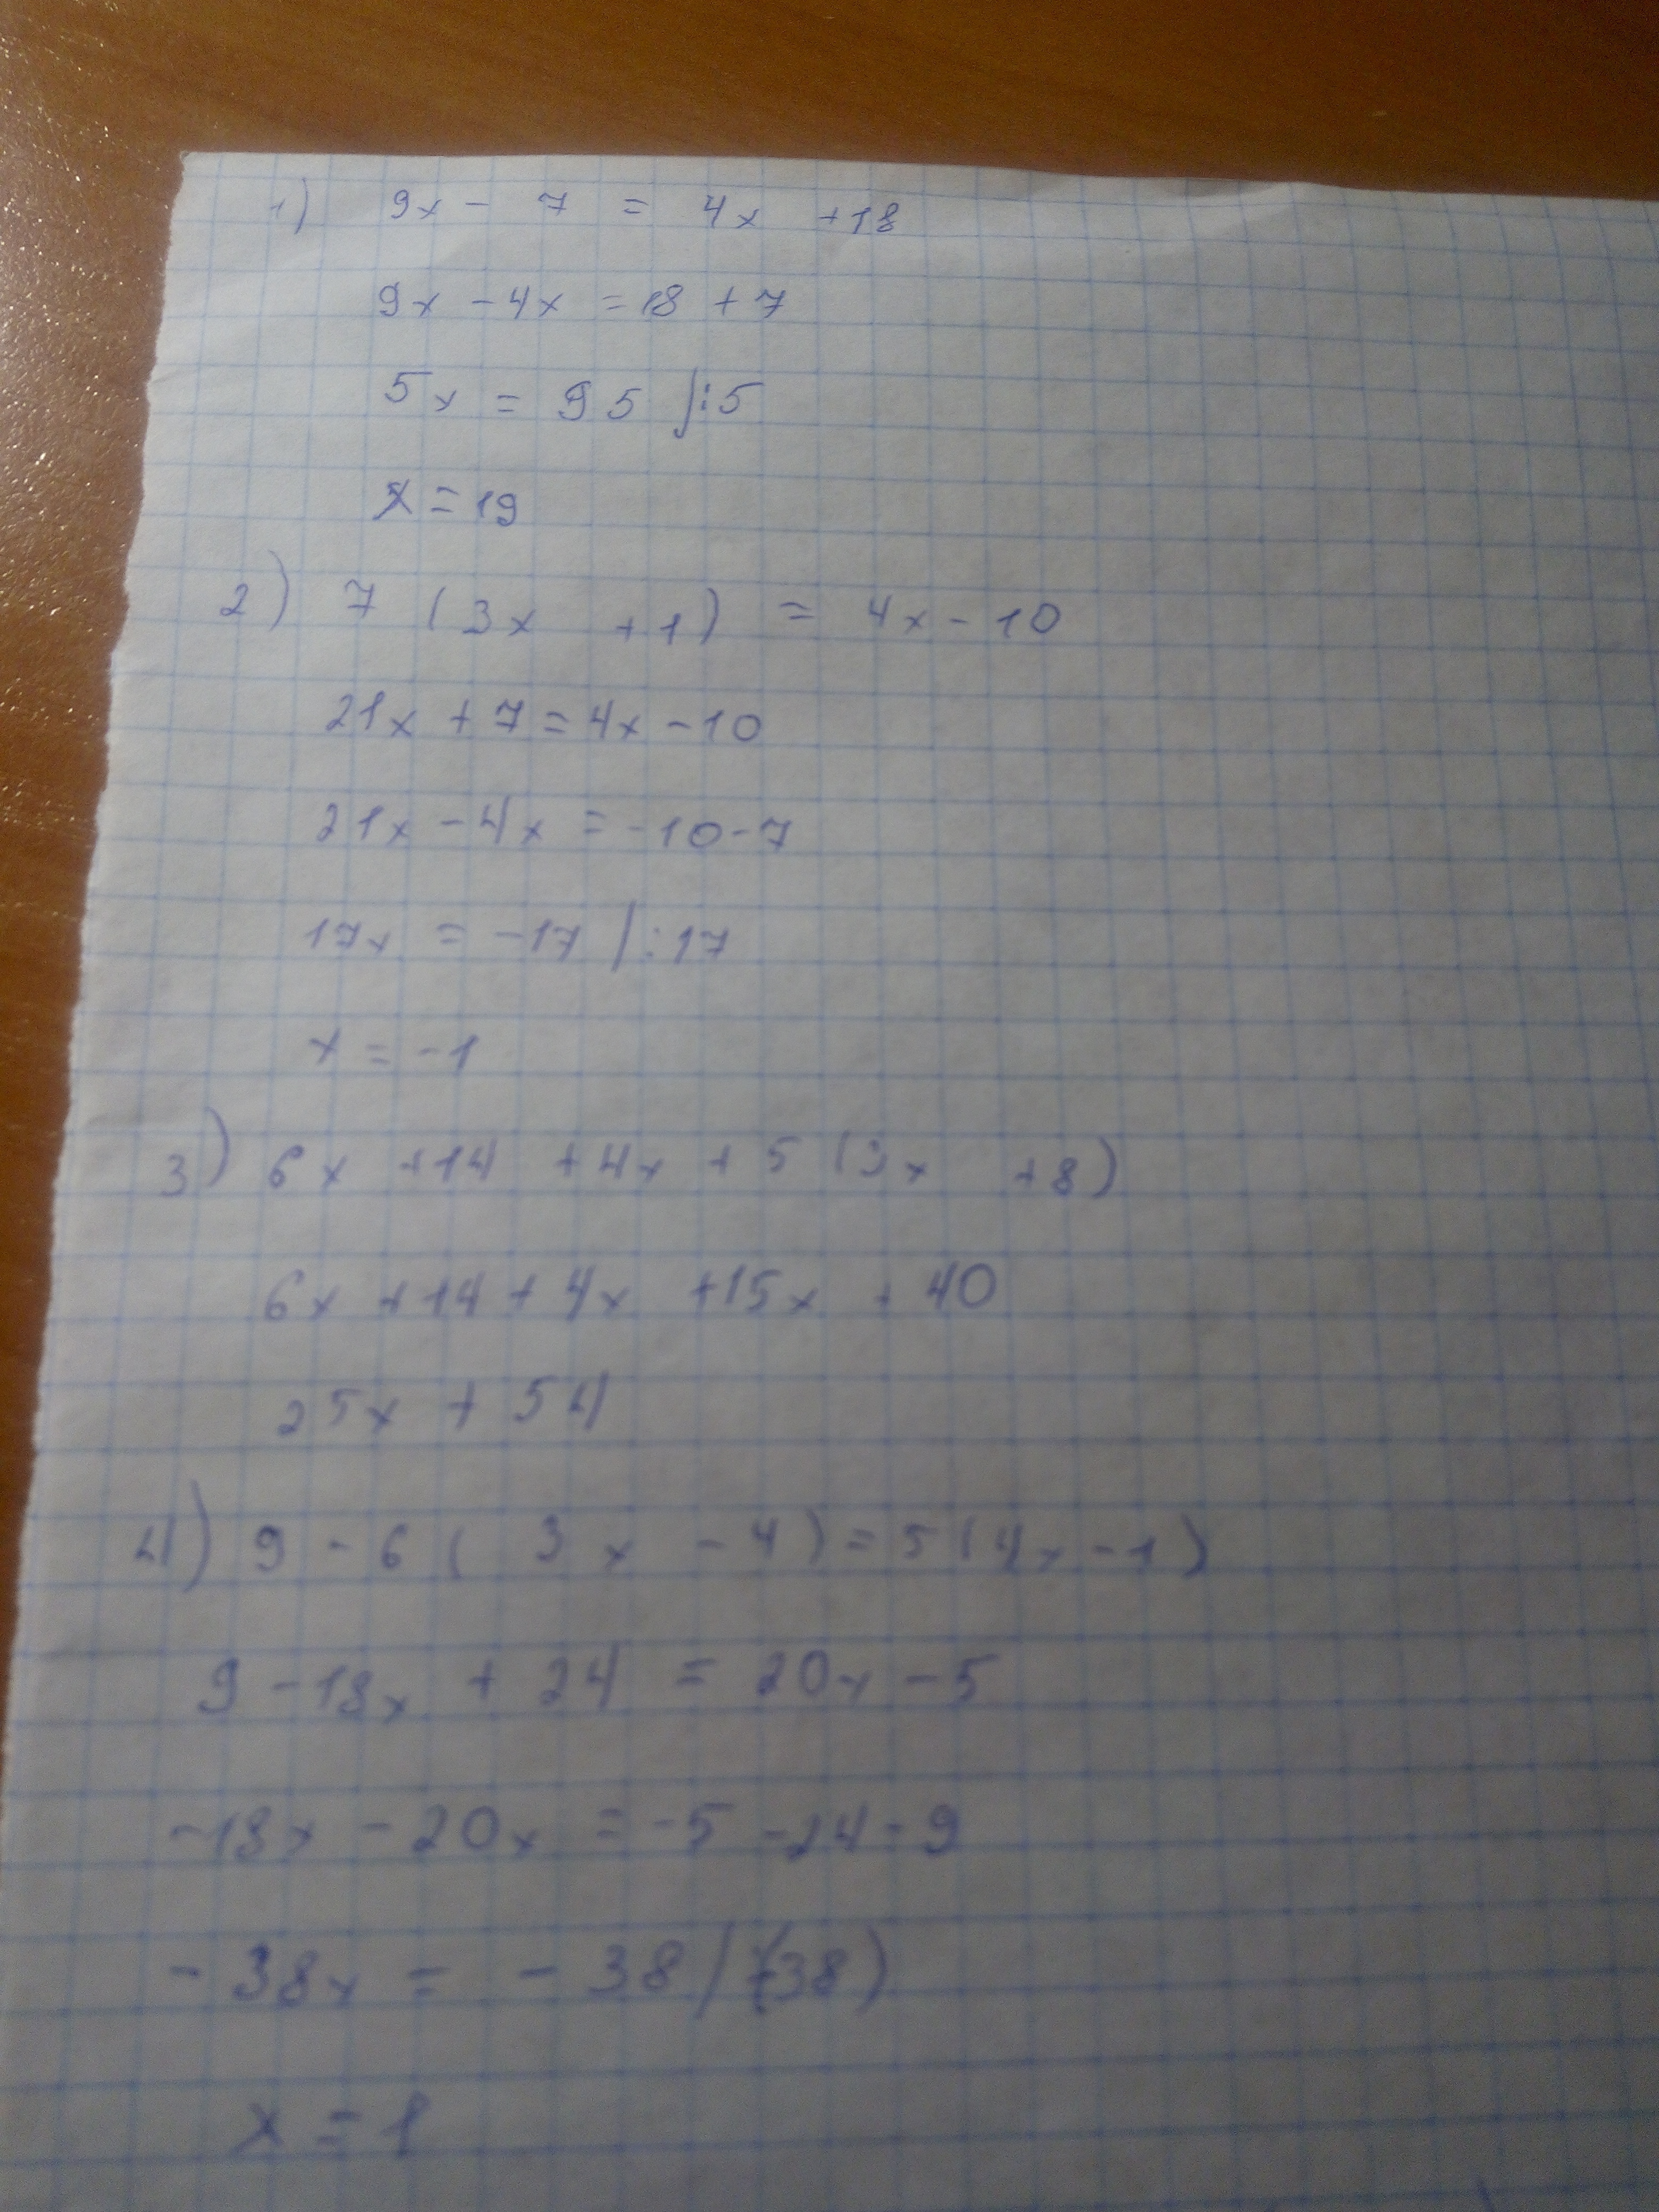 1) 9x - 7 = 4x +18
9x - 4x = 18 + 7
5x = 95 |:5
x = 19
2) 7 (3x +1) = 4x - 10
21x + 7 = 4x - 10
21x - 4x = -10 - 7
17x = -17 |:17
x = -1
3) 6x +14 +4x + 5 (3x +8)
6x +14 + 4x +15x + 40
25x + 54
4) 9 - 6 ( 3x - 4) = 5 (4x - 1)
9 - 18x + 24 = 20x - 5
-18x - 20x = -5 -24 - 9
- 38x = - 38 | :(-38)
x = 1